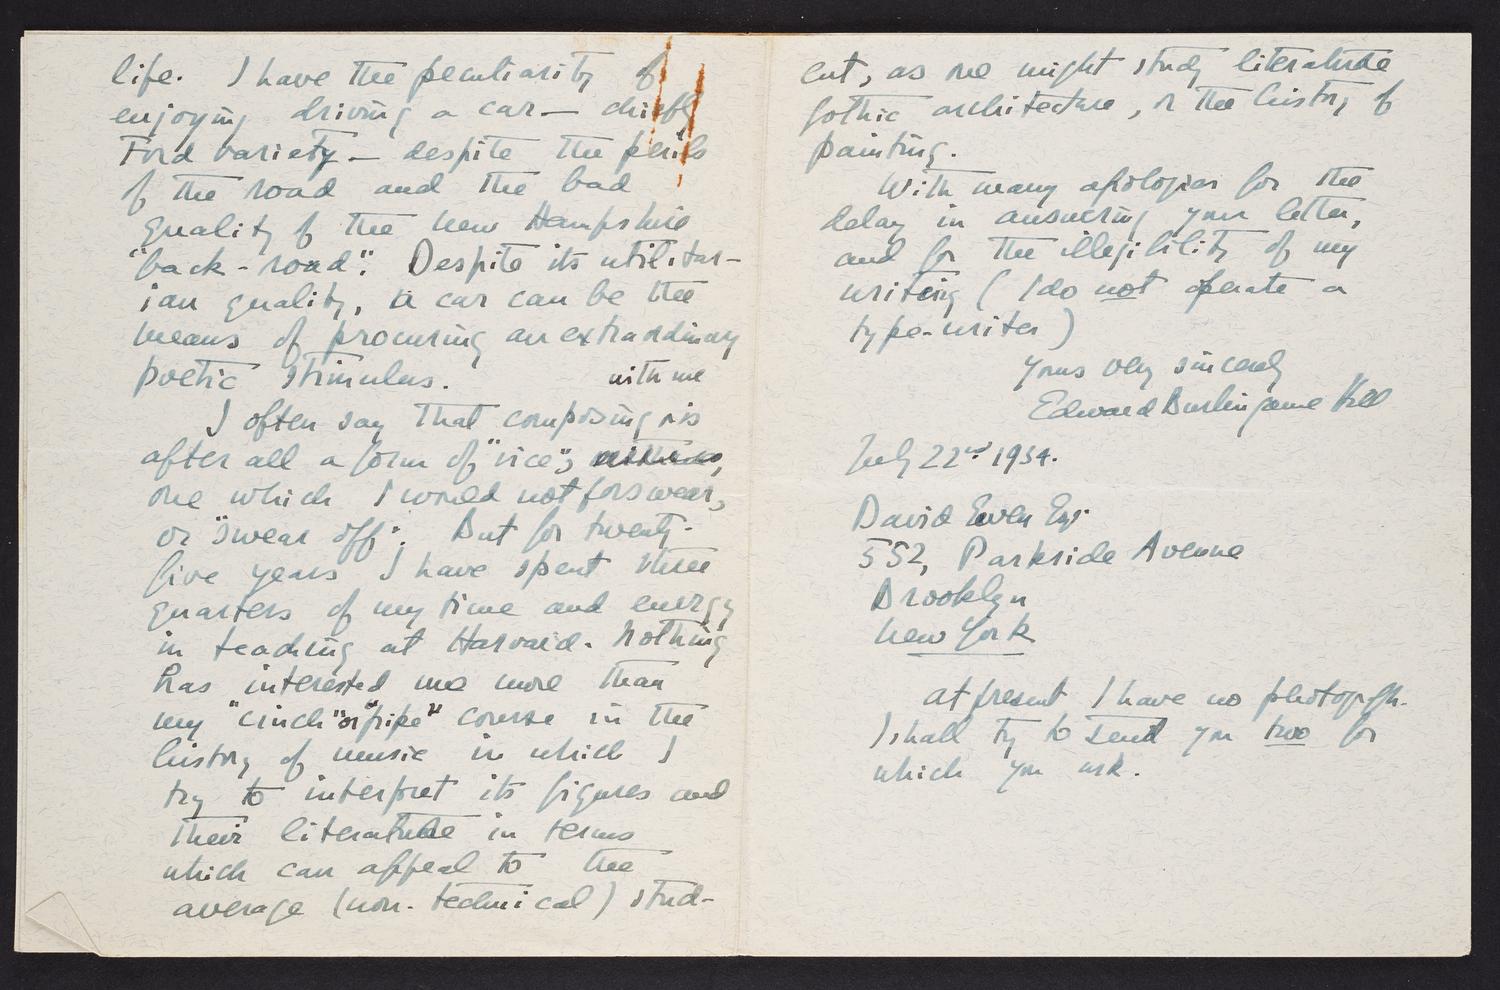 life. I have the peculiarity of
enjoying driving a car — chiefly
Ford variety — despite the perils
of the road and the bad
quality of the New Hampshire
"back-road". Despite its utilitar-
ian quality, a car can be the
means of procuring an extraordinary
poetic stimulus.
with me
I often say that composing is
after all a form of "vice";
one which I would not forswear,
or "swear off". But for twenty-
five years I have spent three
quarters of my time and energy
in teaching at Harvard. Nothing
has interested me more than
my "cinch" or "pipe" course in the
history of music in which I
try to interpret its figures and
their literature in terms
which can appeal to the
average (non-technical) stud-
ent, as one might study literature
Gothic architecture, or the history of
painting.
With many apologies for the
delay in answering your letter,
and for the illegibility of my
writing (I do not operate a
type-writer)
Yours very sincerely
Edward Burlingame Hill
July 22nd 1934.
David Ewen Esq.
552, Parkside Avenue
Brooklyn
New York
At present I have no photograph.
I shall try to send you two for
which you ask.